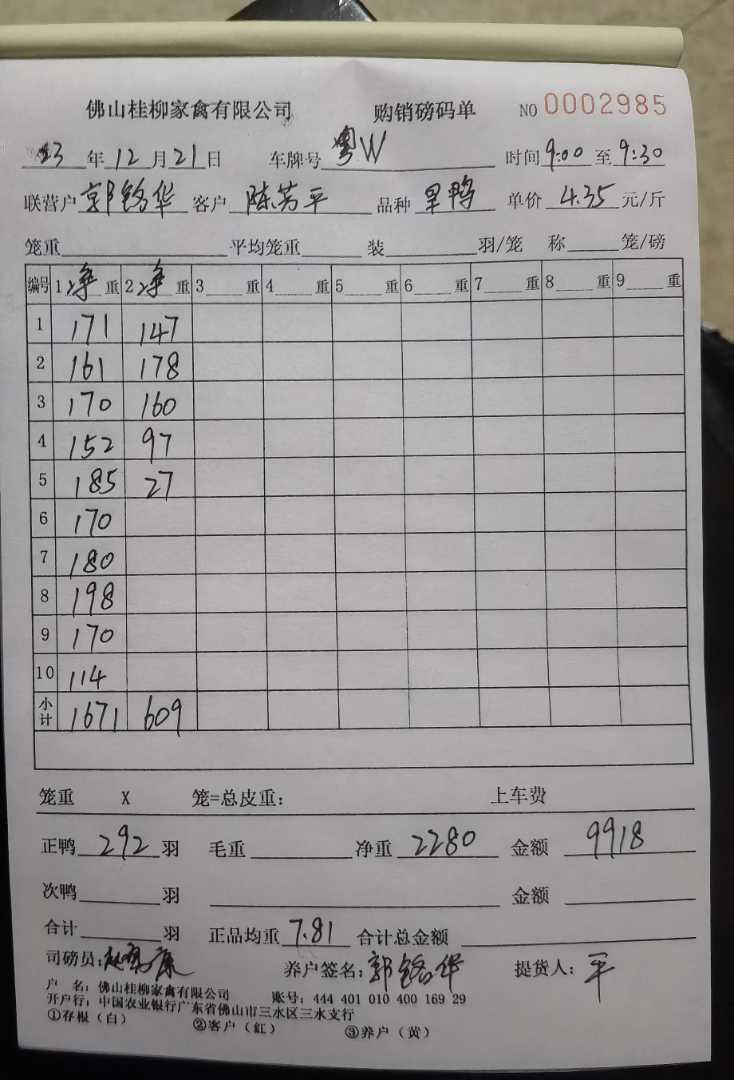 佛山桂柳家禽有限公司 购销磅码单 NO 0002985
23 年 12 月 21 日 车牌号 粤W 时间 9:00 至 9:30
联营户 郭铭华 客户 陈芳平 品种 旱鸭 单价 4.35 元/斤
笼重 平均笼重 装 羽/笼 称 笼/磅
编号 1 净 重 2 净 重 3 重 4 重 5 重 6 重 7 重 8 重 9 重
1 171 147
2 161 178
3 170 160
4 152 97
5 185 27
6 170
7 180
8 198
9 170
10 114
小计 1671 609
笼重 X 笼=总皮重: 上车费
正鸭 292 羽 毛重 净重 2280 金额 9918
次鸭 羽 金额
合计 羽 正品均重 7.81 合计总金额
司磅员: 养户签名: 郭铭华 提货人: 平
户 名: 佛山桂柳家禽有限公司 账号: 444 401 010 400 169 29
开户行: 中国农业银行广东省佛山市三水区三水支行
①存根（白） ②客户（红） ③养户（黄）